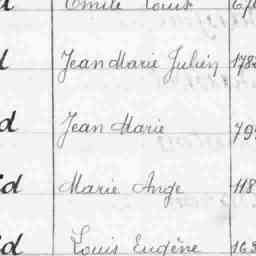 Emile Louis 676
d Jean Marie Julien 1782
d Jean Marie 795
id Marie Ange 118
id Louis Eugène 163